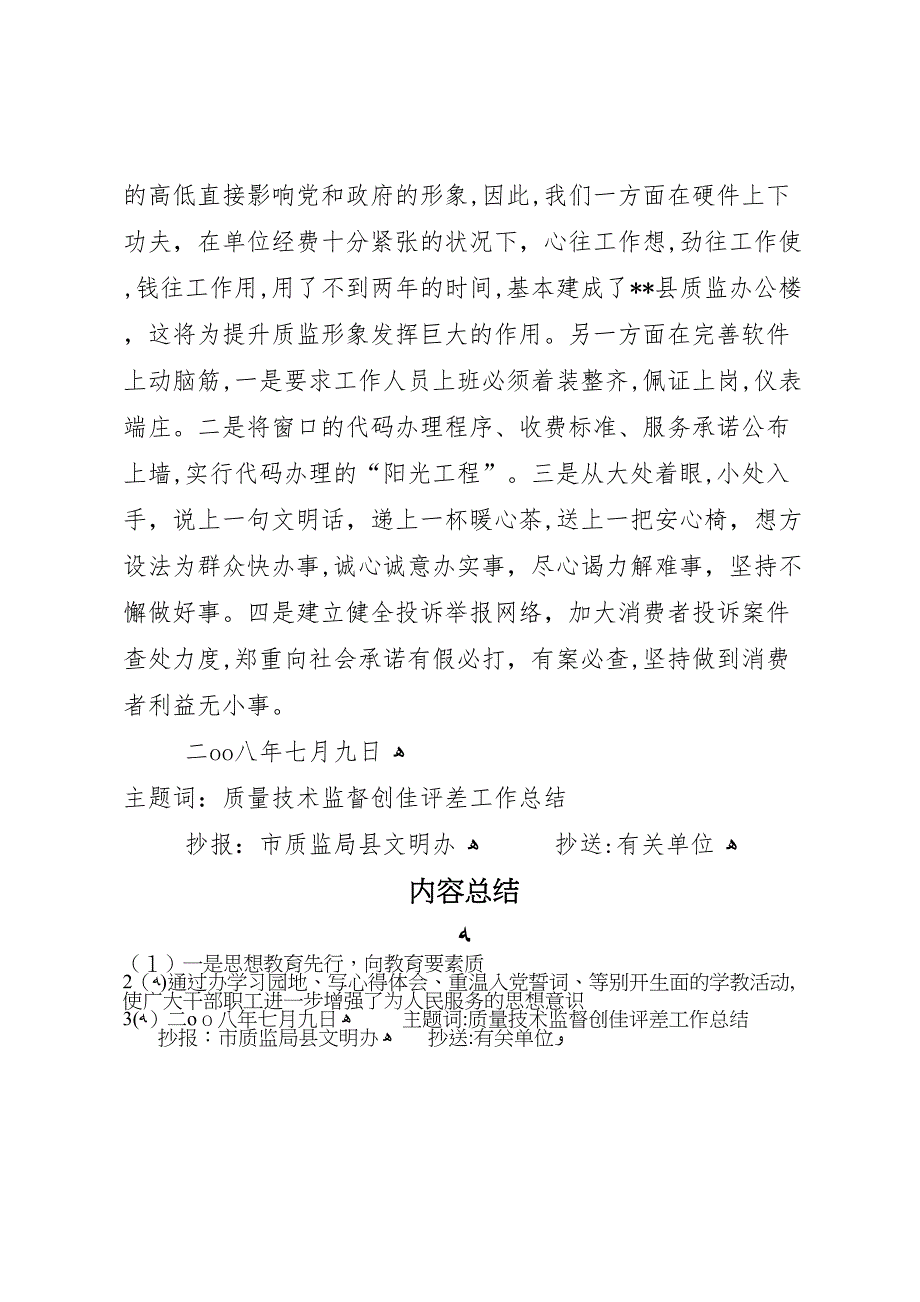 的高低直接影响党和政府的形象,因此,我们一方面在硬件上下
功夫，在单位经费十分紧张的状况下，心往工作想,劲往工作使
,钱往工作用,用了不到两年的时间,基本建成了**县质监办公楼
，这将为提升质监形象发挥巨大的作用。另一方面在完善软件
上动脑筋,一是要求工作人员上班必须着装整齐,佩证上岗,仪表
端庄。二是将窗口的代码办理程序、收费标准、服务承诺公布
上墙,实行代码办理的“阳光工程”。三是从大处着眼,小处入
手，说上一句文明话，递上一杯暖心茶,送上一把安心椅，想方
设法为群众快办事,诚心诚意办实事，尽心谒力解难事，坚持不
懈做好事。四是建立健全投诉举报网络，加大消费者投诉案件
查处力度,郑重向社会承诺有假必打，有案必查,坚持做到消费
者利益无小事。
二oo八年七月九日ﻫ
主题词：质量技术监督创佳评差工作总结
抄报：市质监局县文明办ﻫ 抄送:有关单位ﻫ
内容总结
ﻪ
（1）一是思想教育先行，向教育要素质
2（ﻪ)通过办学习园地、写心得体会、重温入党誓词、等别开生面的学教活动,
使广大干部职工进一步增强了为人民服务的思想意识
3(ﻪ）二oｏ八年七月九日ﻫ 主题词:质量技术监督创佳评差工作总结
抄报：市质监局县文明办ﻫ 抄送:有关单位و